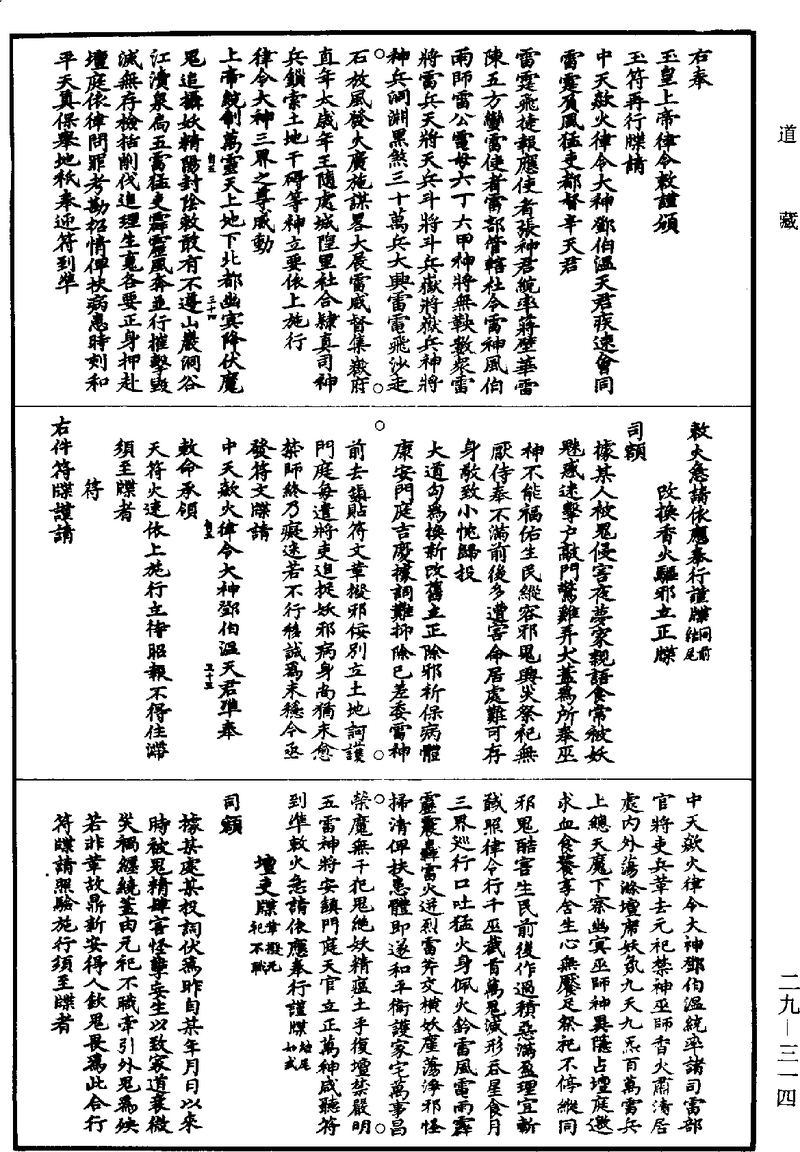 道藏
右奉
玉皇上帝律令敕謹頒
玉符再行牒請
中天欻火律令大神鄧伯溫天君疾速會同
雷霆負風猛吏都督辛天君
雷霆飛捷報應使者張神君統率蔣壁華雷
陳五方蠻雷使者雷部管轄社令雷神風伯
雨師雷公電母六丁六甲神將無鞅數衆雷
將雷兵天將天兵斗將斗兵嶽將嶽兵神將
神兵洞淵黑煞三十萬兵大興雷電飛沙走
石放風發火廣施謀畧大展雷威督集嶽府
直年太歲年王隨處城隍里社合隸真司神
兵鎖索土地干碍等神立要依上施行
律令大神三界之尊威動
上帝統制萬靈天上地下北都幽冥降伏魔
鬼追攝妖精陽封陰敕敢有不遵山巖洞谷
江瀆泉扃五雷猛吏霹靂風奔並行摧擊毀
滅無存檢括削伐追理生䰟各要正身押赴
壇庭依律問罪考勘招情俾扶病患時刻和
平天真保舉地祇奉迎符到準
敕火急請依應奉行謹牒同前結尾
改換香火驅邪立正牒
司額
據某人被鬼侵害夜夢家親語食常被妖
魅惑迷擊户敲門驚雞弄犬蓋爲所奉巫
神不能福佑生民縱容邪鬼興災祭祀無
厭侍奉不滿前後多遭害命居處難可存
身敢致小忱歸投
大道勾爲換新改舊立正除邪祈保病體
康安門庭吉慶據詞難抑除已差委雷神
前去鎮貼符文革撥邪佞别立土地訶護
門庭每遣將吏追捉妖邪病身尚猶未愈
禁師終乃癡迷若不行移誠爲未穩今亟
發符文牒請
中天欻火律令大神鄧伯溫天君準奉
敕命承領
天符火速依上施行立待昭報不得住滯
須至牒者
符
右件符牒謹請
中天欻火律令大神鄧伯溫統率諸司雷部
官將吏兵革去元祀禁神巫師香火肅清居
處内外蕩滌壇席妖氛九天九炁百萬雷兵
上總天魔下察幽冥巫師神異隱占壇庭邀
求血食饕享舍生心無饜足祭祀不停縱同
邪鬼酷害生民前後作過積惡滿盈理宜斬
馘照律令行千巫截首萬鬼滅形吞星食月
三界巡行口吐猛火身佩火鈴雷風電雨霹
靂震轟雷火迸烈雷斧交横妖崖蕩淨邪怪
掃清俾扶患體即遂和平衛護家宅萬事昌
榮魔無干犯鬼絶妖精瘟土乎復壇禁嚴明
五雷神將安鎮門庭天官立正萬神咸聽符
到準敕火急請依應奉行謹牒結尾如式
壇吏牒革撥元祀不職
司額
據某處某投詞伏爲昨自某年月日以來
時被鬼精肆害怪孽妄生以致家道衰微
災禍纒繞蓋由元祀不職牽引外鬼爲殃
若非革故鼎新安得人欽鬼畏爲此合行
符牒請照驗施行須至牒者
二九—三一四